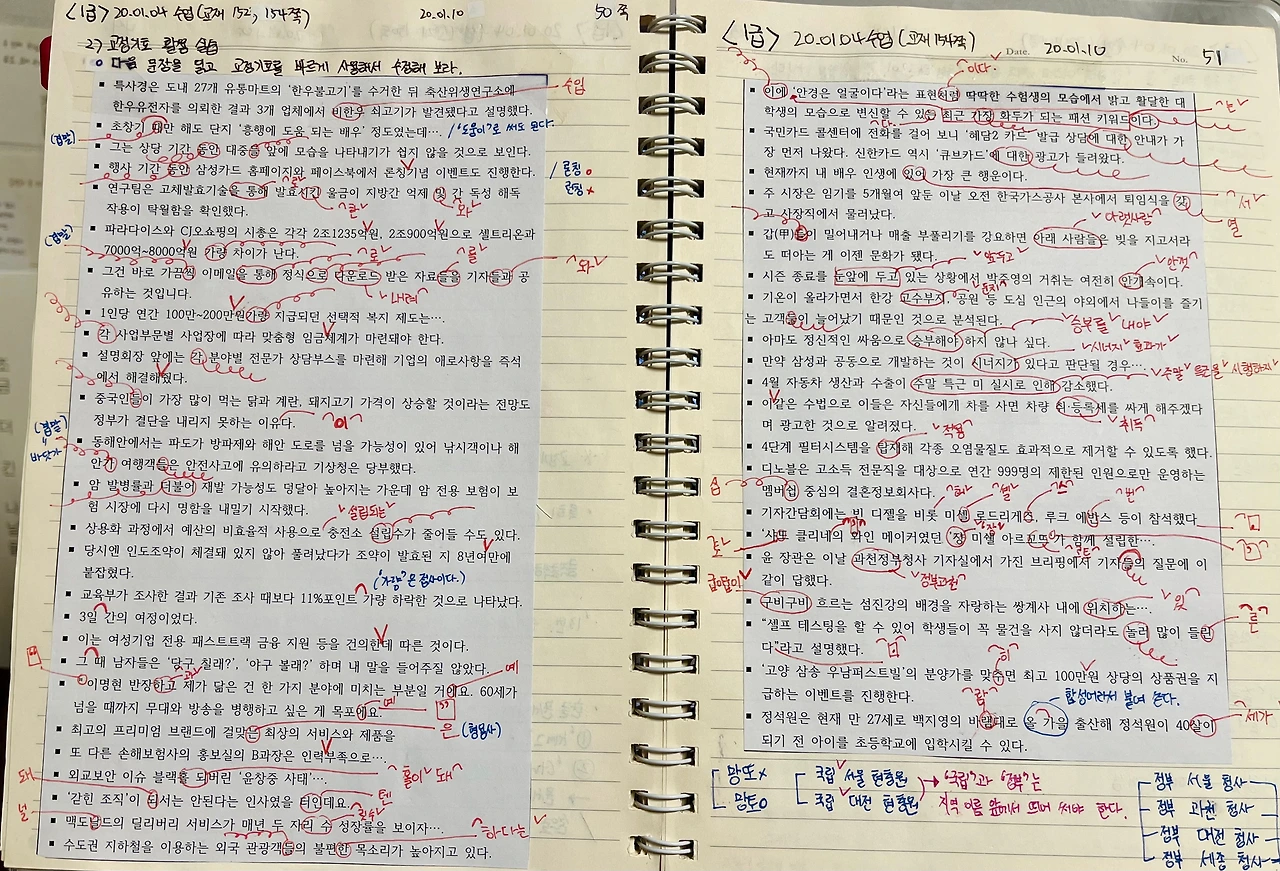 <1급> 20.01.04 수업 (교재 152, 154쪽) 20.01.10 50쪽
2) 교정기호 활용 실습
○ 다음 문장을 읽고 교정기호를 바르게 사용해서 수정해 보라.
▪ 특사경은 도내 27개 유통마트의 '한우불고기'를 수거한 뒤 축산위생연구소에 수입
한우유전자를 의뢰한 결과 3개 업체에서 비한우 쇠고기가 발견됐다고 설명했다.
▪ 초창기 때만 해도 단지 '흥행에 도움 되는 배우' 정도였는데… / '도움이'로 써도 된다.
(겹말)
▪ 그는 상당 기간 동안 대중들 앞에 모습을 나타내기가 쉽지 않을 것으로 보인다.
▪ 행사 기간 동안 삼성카드 홈페이지와 페이스북에서 론칭기념 이벤트도 진행한다. / 론칭○
런칭×
▪ 연구팀은 고체발효기술을 통해 발효시킨 울금이 지방간 억제 및 간 독성 해독
작용이 탁월함을 확인했다. 큰 와
▪ 파라다이스와 CJ오쇼핑의 시총은 각각 2조1235억원, 2조900억원으로 셀트리온과
(겹말)
7000억~8000억원 가량 차이가 난다.
로 를
▪ 그건 바로 가끔씩 이메일을 통해 정식으로 다운로드 받은 자료들을 기자들과 공 와
유하는 것입니다. 내려
▪ 1인당 연간 100만~200만원가량 지급되던 선택적 복지 제도는….
▪ 각 사업부문별 사업장에 따라 맞춤형 임금체계가 마련돼야 한다.
▪ 설명회장 앞에는 각 분야별 전문가 상담부스를 마련해 기업의 애로사항을 즉석
에서 해결해줬다.
▪ 중국인들이 가장 많이 먹는 닭과 계란, 돼지고기 가격이 상승할 것이라는 전망도
정부가 결단을 내리지 못하는 이유다. 이
(겹말)
바닷가
▪ 동해안에서는 파도가 방파제와 해안 도로를 넘을 가능성이 있어 낚시객이나 해
안가 여행객들은 안전사고에 유의하라고 기상청은 당부했다.
▪ 암 발병률과 더불어 재발 가능성도 덩달아 높아지는 가운데 암 전용 보험이 보
험 시장에 다시 명함을 내밀기 시작했다. 설립되는
▪ 상용화 과정에서 예산의 비효율적 사용으로 충전소 설립수가 줄어들 수도 있다.
▪ 당시엔 인도조약이 체결돼 있지 않아 풀려났다가 조약이 발효된 지 8년여만에
붙잡혔다. ('가량'은 접사이다.)
▪ 교육부가 조사한 결과 기존 조사 때보다 11%포인트 가량 하락한 것으로 나타났다.
▪ 3일 간의 여정이었다.
▪ 이는 여성기업 전용 패스트트랙 금융 지원 등을 건의한데 따른 것이다.
▪ 그 때 남자들은 '당구 칠래?', '야구 볼래?' 하며 내 말을 들어주질 않았다.
예
▪ 이명현 반장하고 제가 닮은 건 한 가지 분야에 미치는 부분일 거에요. 60세가
넘을 때까지 무대와 방송을 병행하고 싶은 게 목포에요. 예
▪ 최고의 프리미엄 브랜드에 걸맞는 최상의 서비스와 제품을 은 (형용사)
▪ 또 다른 손해보험사의 홍보실의 B과장은 인력부족으로….
▪ 외교보안 이슈 블랙홀 되버린 '윤창중 사태'…. 홀이 돼
돼
▪ '갇힌 조직'이 되서는 안된다는 인사였을 터인데요. 텐
널
▪ 맥도날드의 딜리버리 서비스가 매년 두 자리 수 성장률을 보이자…. 릿수
하다는
▪ 수도권 지하철을 이용하는 외국 관광객들의 불편한 목소리가 높아지고 있다.
<1급> 20.01.04 수업 (교재 154쪽) Date. 20.01.10 No. 51
이다.
▪ 이에 '안경은 얼굴이다'라는 표현처럼 딱딱한 수험생의 모습에서 밝고 활달한 대 는
학생의 모습으로 변신할 수 있는 최근 가장 화두가 되는 패션 키워드이다.
▪ 국민카드 콜센터에 전화를 걸어 보니 '혜담2 카드' 발급 상담에 대한 안내가 가
장 먼저 나왔다. 신한카드 역시 '큐브카드'에 대한 광고가 들려왔다.
▪ 현재까지 내 배우 인생에 있어 가장 큰 행운이다.
▪ 주 시장은 임기를 5개월여 앞둔 이날 오전 한국가스공사 본사에서 퇴임식을 갖 서
고 사장직에서 물러났다. 열
아랫사람
▪ 갑(甲)들이 밀어내거나 매출 부풀리기를 강요하면 아래 사람들은 빚을 지고서라
도 떠아는 게 이젠 문화가 됐다. 앞두고
▪ 시즌 종료를 눈앞에 두고 있는 상황에서 박주영의 거취는 여전히 안개속이다. 안갯
둔치
▪ 기온이 올라가면서 한강 고수부지, 공원 등 도심 인근의 야외에서 나들이를 즐기
는 고객들이 늘어났기 때문인 것으로 분석된다. 승부를 내야
▪ 아마도 정신적인 싸움으로 승부해야 하지 않나 싶다. 시너지 효과가
▪ 만약 삼성과 공동으로 개발하는 것이 시너지가 있다고 판단될 경우…
▪ 4월 자동차 생산과 수출이 주말 특근 미 실시로 인해 감소했다.
▪ 이같은 수법으로 이들은 자신들에게 차를 사면 차량 취·등록세를 싸게 해주겠다
며 광고한 것으로 알려졌다. 취득
적용
▪ 4단계 필터시스템을 탑재해 각종 오염물질도 효과적으로 제거할 수 있도록 했다.
▪ 디노블은 고소득 전문직을 대상으로 연간 999명의 제한된 인원으로만 운영하는
십
멤버쉽 중심의 결혼정보회사다.
▪ 기자간담회에는 빈 디젤을 비롯 미셸 로드리게즈, 루크 에반스 등이 참석했다
▪ '샤또 클리네'의 와인 메이커였던 '장 미셸 아르꼬또'가 함께 설립한…. 토
▪ 윤 장관은 이날 과천정부청사 기자실에서 가진 브리핑에서 기자들의 질문에 이
같이 답했다. 정부과천
굽이굽이
▪ 구비구비 흐르는 섬진강의 배경을 자랑하는 쌍계사 내에 위치하는…. 있
▪ "셀프 테스팅을 할 수 있어 학생들이 꼭 물건을 사지 않더라도 놀러 많이 들린 른
다"라고 설명했다.
히
▪ '고양 삼송 우남퍼스트빌'의 분양가를 맞추면 최고 100만원 상당의 상품권을 지
급하는 이벤트를 진행한다. 람 합성어라서 붙여 쓴다.
▪ 정석원은 현재 만 27세로 백지영의 바램대로 올 가을 출산해 정석원이 40살이 세가
되기 전 아이를 초등학교에 입학시킬 수 있다.
망또×
망토○
국립 서울 현충원
국립 대전 현충원
→ '국립'과 '정부'는
지역 이름 앞에서 띄어 써야 한다.
정부 서울 청사
정부 과천 청사
정부 대전 청사
정부 세종 청사